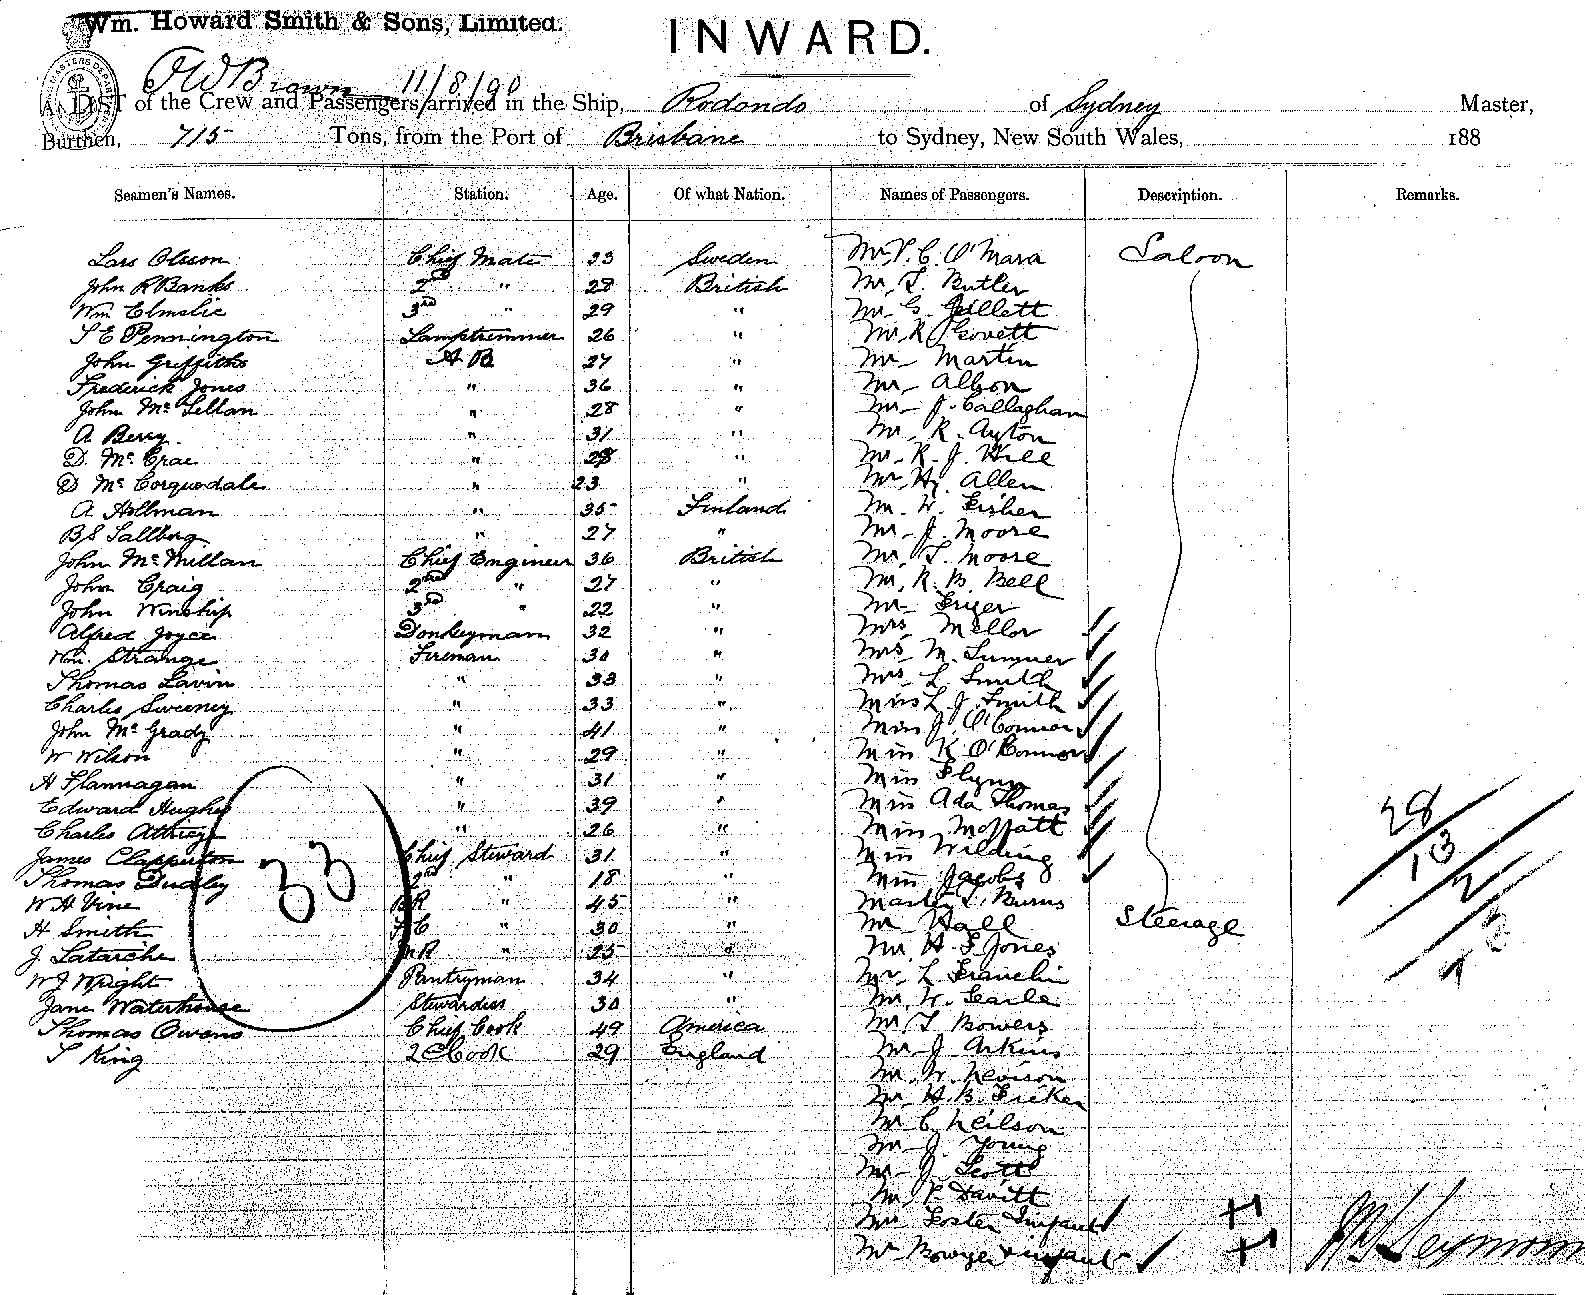 Wm. Howard Smith & Sons, Limited.
INWARD.
MASTERS DEPAR
J W Brown 11/8/90
A LIST of the Crew and Passengers arrived in the Ship, Rodondo of Sydney Master,
Burthen, 715 Tons, from the Port of Brisbane to Sydney, New South Wales, 188
Seamen's Names. Station. Age. Of what Nation. Names of Passengers. Description. Remarks.
Lars Olsson Chief Mate 33 Sweden Mr. T. C. O'Mara Saloon
John R Banks 2nd " 28 British Mr. T. Butler
Wm Elmslie 3rd " 29 " Mr. G. Gillett
T E Pennington Lamptrimmer 26 " Mr. R. Govett
John Griffiths A B 27 " Mr Martin
Frederick Jones " 36 " Mr Albon
John Mc Lellan " 28 " Mr J. Callaghan
A Berry " 31 " Mr R. Ayton
D. Mc Crae " 28 " Mr R. J. Hill
D Mc Corquodale " 23 " Mr Hy. Allen
A Hollman " 35 Finland Mr. W. Fisher
B S Sallberg " 27 " Mr J. Moore
John Mc Millan Chief Engineer 36 British Mr. T. Moore
John Craig 2nd " 27 " Mr. R. B. Bell
John Winship 3rd " 22 " Mr
Alfred Joyce Donkeyman 32 " Mrs Mellor
Wm. Strange Fireman 30 " Mrs M. Sumner
Thomas Lavin " 33 " Mrs L. Smith
Charles Sweeney " 33 " Miss L. J. Smith
John Mc Grady " 41 " Miss J. O'Connor
W Wilson " 29 " Miss K. O'Connor
H Flannagan " 31 " Miss Flynn
Edward Hughes " 39 " Miss Ada Thomas
Charles " 26 " Miss Moffatt
James Clapperton Chief Steward 31 " Miss Wilding
Thomas Dudley 2nd " 18 " Miss Jacobs
W H Vine B R " 45 " Master L. Burns
H Smith F C " 30 " Mr Hall Steerage
J. Latarche M R " 25 " Mr H. F. Jones
W J Wright Pantryman 34 " Mr L. Franclin
Jane Waterhouse Stewardess 30 " Mr W. Searle
Thomas Owens Chief Cook 49 America Mr T Bowers
S King 2 Cook 29 England Mr J. Arkins
Mr. W. Nevison
Mr H. B. Fricker
Mr C. Neilson
Mr J. Young
Mr J. Scott
Mr P. Davitt
Mrs Foster Infant +1
Mrs Bowyer & infant +1
33
28
13
2
43
Seymour